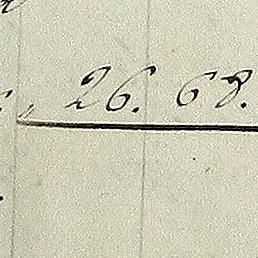 26. 68.